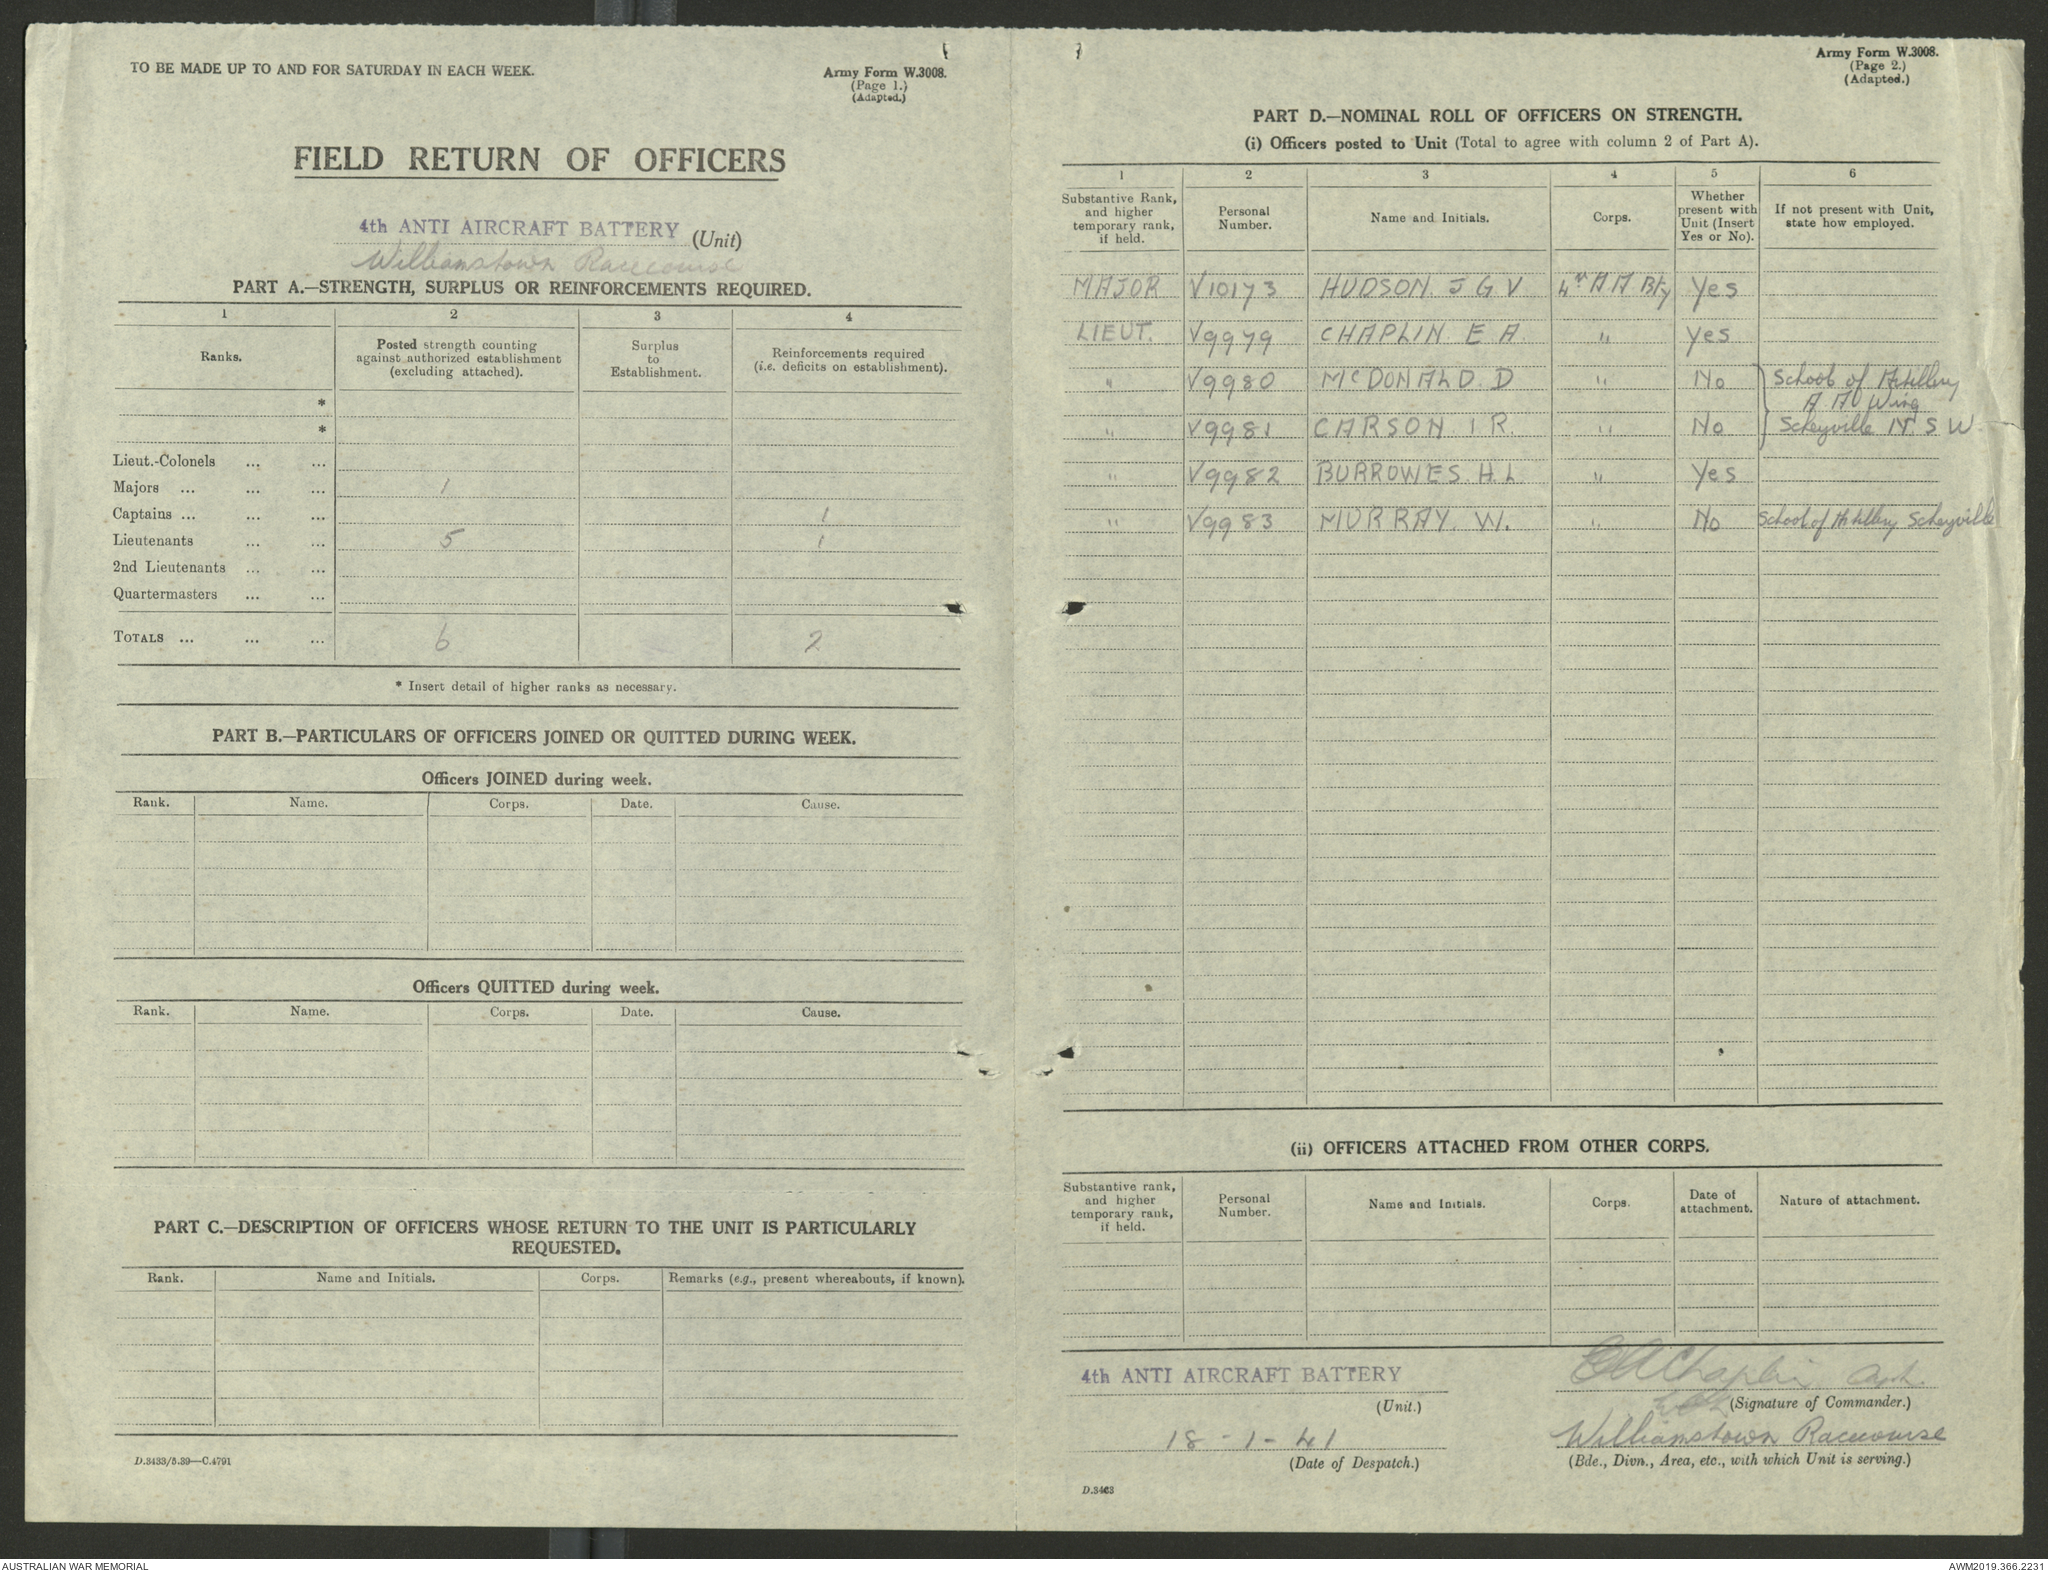 TO BE MADE UP TO AND FOR SATURDAY IN EACH WEEK.
Army Form W.3008.
(Page 1.)
(Adapted.)
FIELD RETURN OF OFFICERS
4th ANTI AIRCRAFT BATTERY (Unit)
Williamstown Racecourse
PART A.—STRENGTH, SURPLUS OR REINFORCEMENTS REQUIRED.
1 2 3 4
Ranks. Posted strength counting against authorized establishment (excluding attached). Surplus to Establishment. Reinforcements required (i.e. deficits on establishment).
*
*
Lieut.-Colonels ... ...
Majors ... ... ... 1
Captains ... ... ... 1
Lieutenants ... ... 5 1
2nd Lieutenants ... ...
Quartermasters ... ...
TOTALS ... ... ... 6 2
* Insert detail of higher ranks as necessary.
PART B.—PARTICULARS OF OFFICERS JOINED OR QUITTED DURING WEEK.
Officers JOINED during week.
Rank. Name. Corps. Date. Cause.
Officers QUITTED during week.
Rank. Name. Corps. Date. Cause.
PART C.—DESCRIPTION OF OFFICERS WHOSE RETURN TO THE UNIT IS PARTICULARLY
REQUESTED.
Rank. Name and Initials. Corps. Remarks (e.g., present whereabouts, if known).
D.3433/5.39—C.4791
Army Form W.3008.
(Page 2.)
(Adapted.)
PART D.—NOMINAL ROLL OF OFFICERS ON STRENGTH.
(i) Officers posted to Unit (Total to agree with column 2 of Part A).
1 2 3 4 5 6
Substantive Rank, and higher temporary rank, if held. Personal Number. Name and Initials. Corps. Whether present with Unit (Insert Yes or No). If not present with Unit, state how employed.
MAJOR V10173 HUDSON. J G V 4th A A Bty Yes
LIEUT. V9979 CHAPLIN. E A. " Yes
" V9980 McDONALD. D " No School of Artillery
A A Wing
" V9981 CARSON I R. " No Scheyville N. S W.
" V9982 BURROWES. H. L. " Yes
" V9983 MURRAY. W. " No School of Artillery Scheyville
(ii) OFFICERS ATTACHED FROM OTHER CORPS.
Substantive rank, and higher temporary rank, if held. Personal Number. Name and Initials. Corps. Date of attachment. Nature of attachment.
4th ANTI AIRCRAFT BATTERY
(Unit.)
18 - 1 - 41
(Date of Despatch.)
D.3433
E A Chaplin
(Signature of Commander.)
Williamstown Racecourse
(Bde., Divn., Area, etc., with which Unit is serving.)
AUSTRALIAN WAR MEMORIAL
AWM2019.366.2231